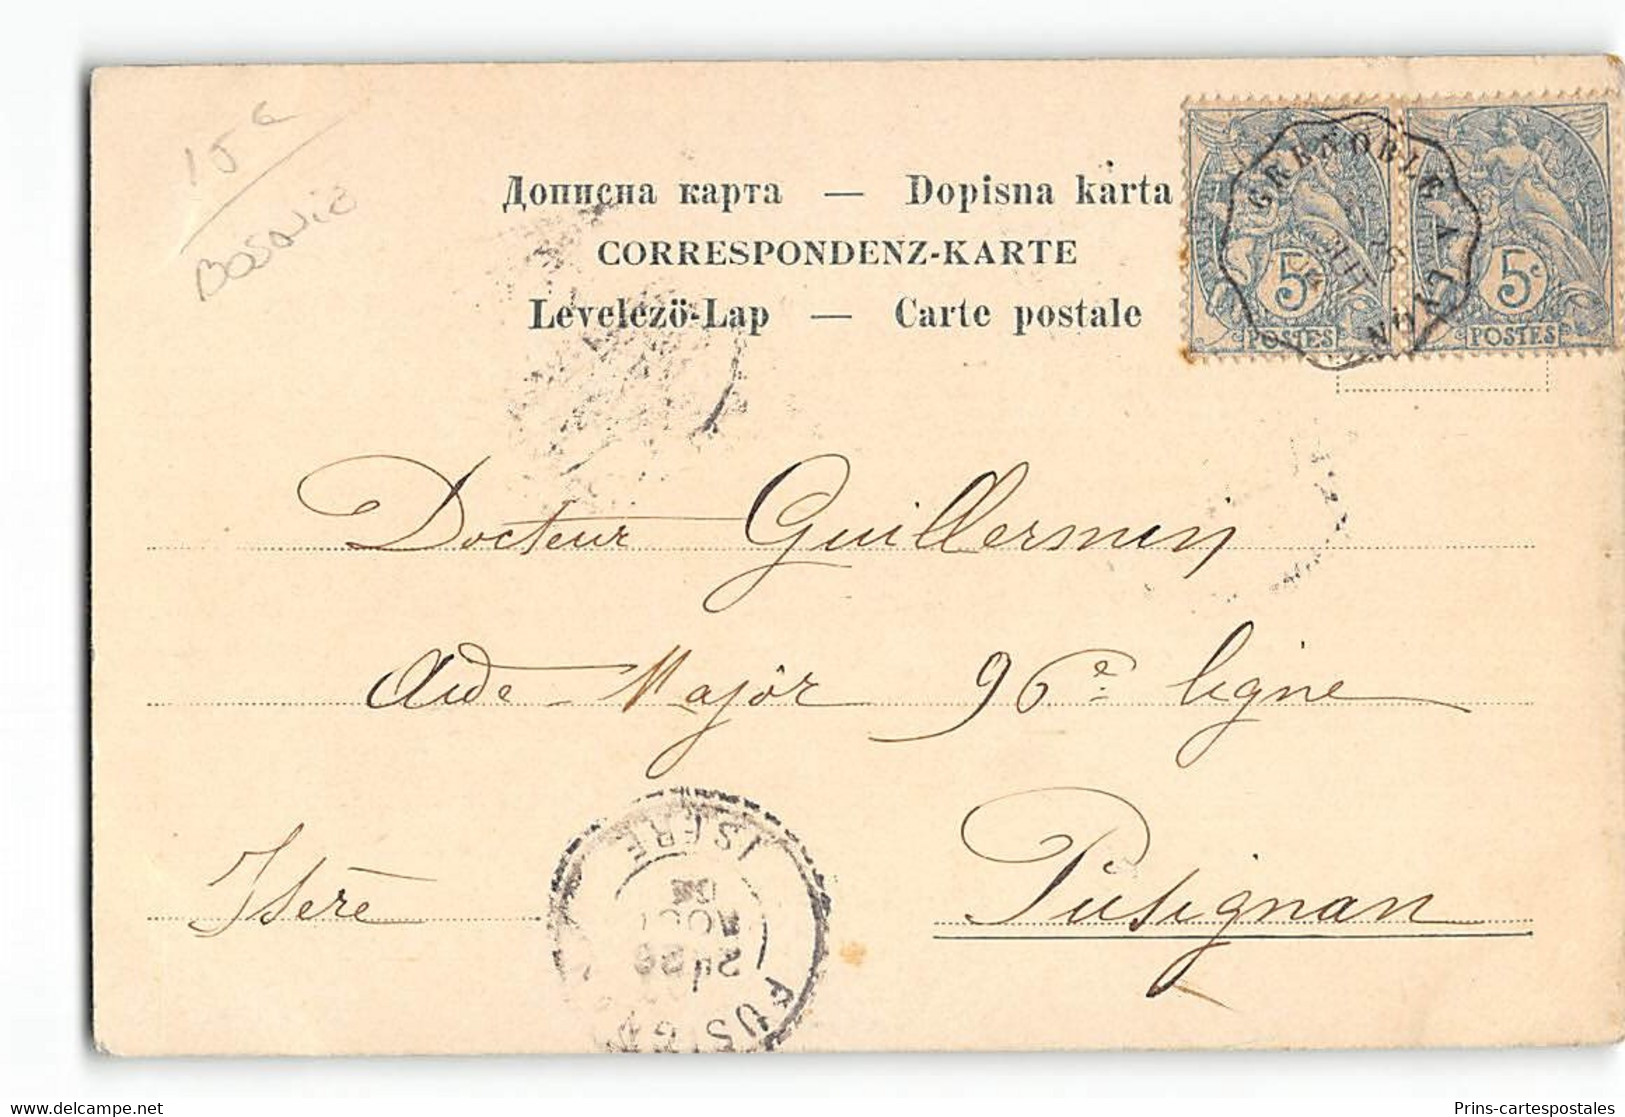 15 c
Bosnie
Дописна карта — Dopisna karta
CORRESPONDENZ-KARTE
Levelező-Lap — Carte postale
GRENOBLE A LYON
5c 5c
POSTES POSTES
Docteur Guillermin
Aide-Major 96e ligne
Pusignan
Isère
ISÈRE
AOUT
https://www.delcampe.net
Prins-cartespostales